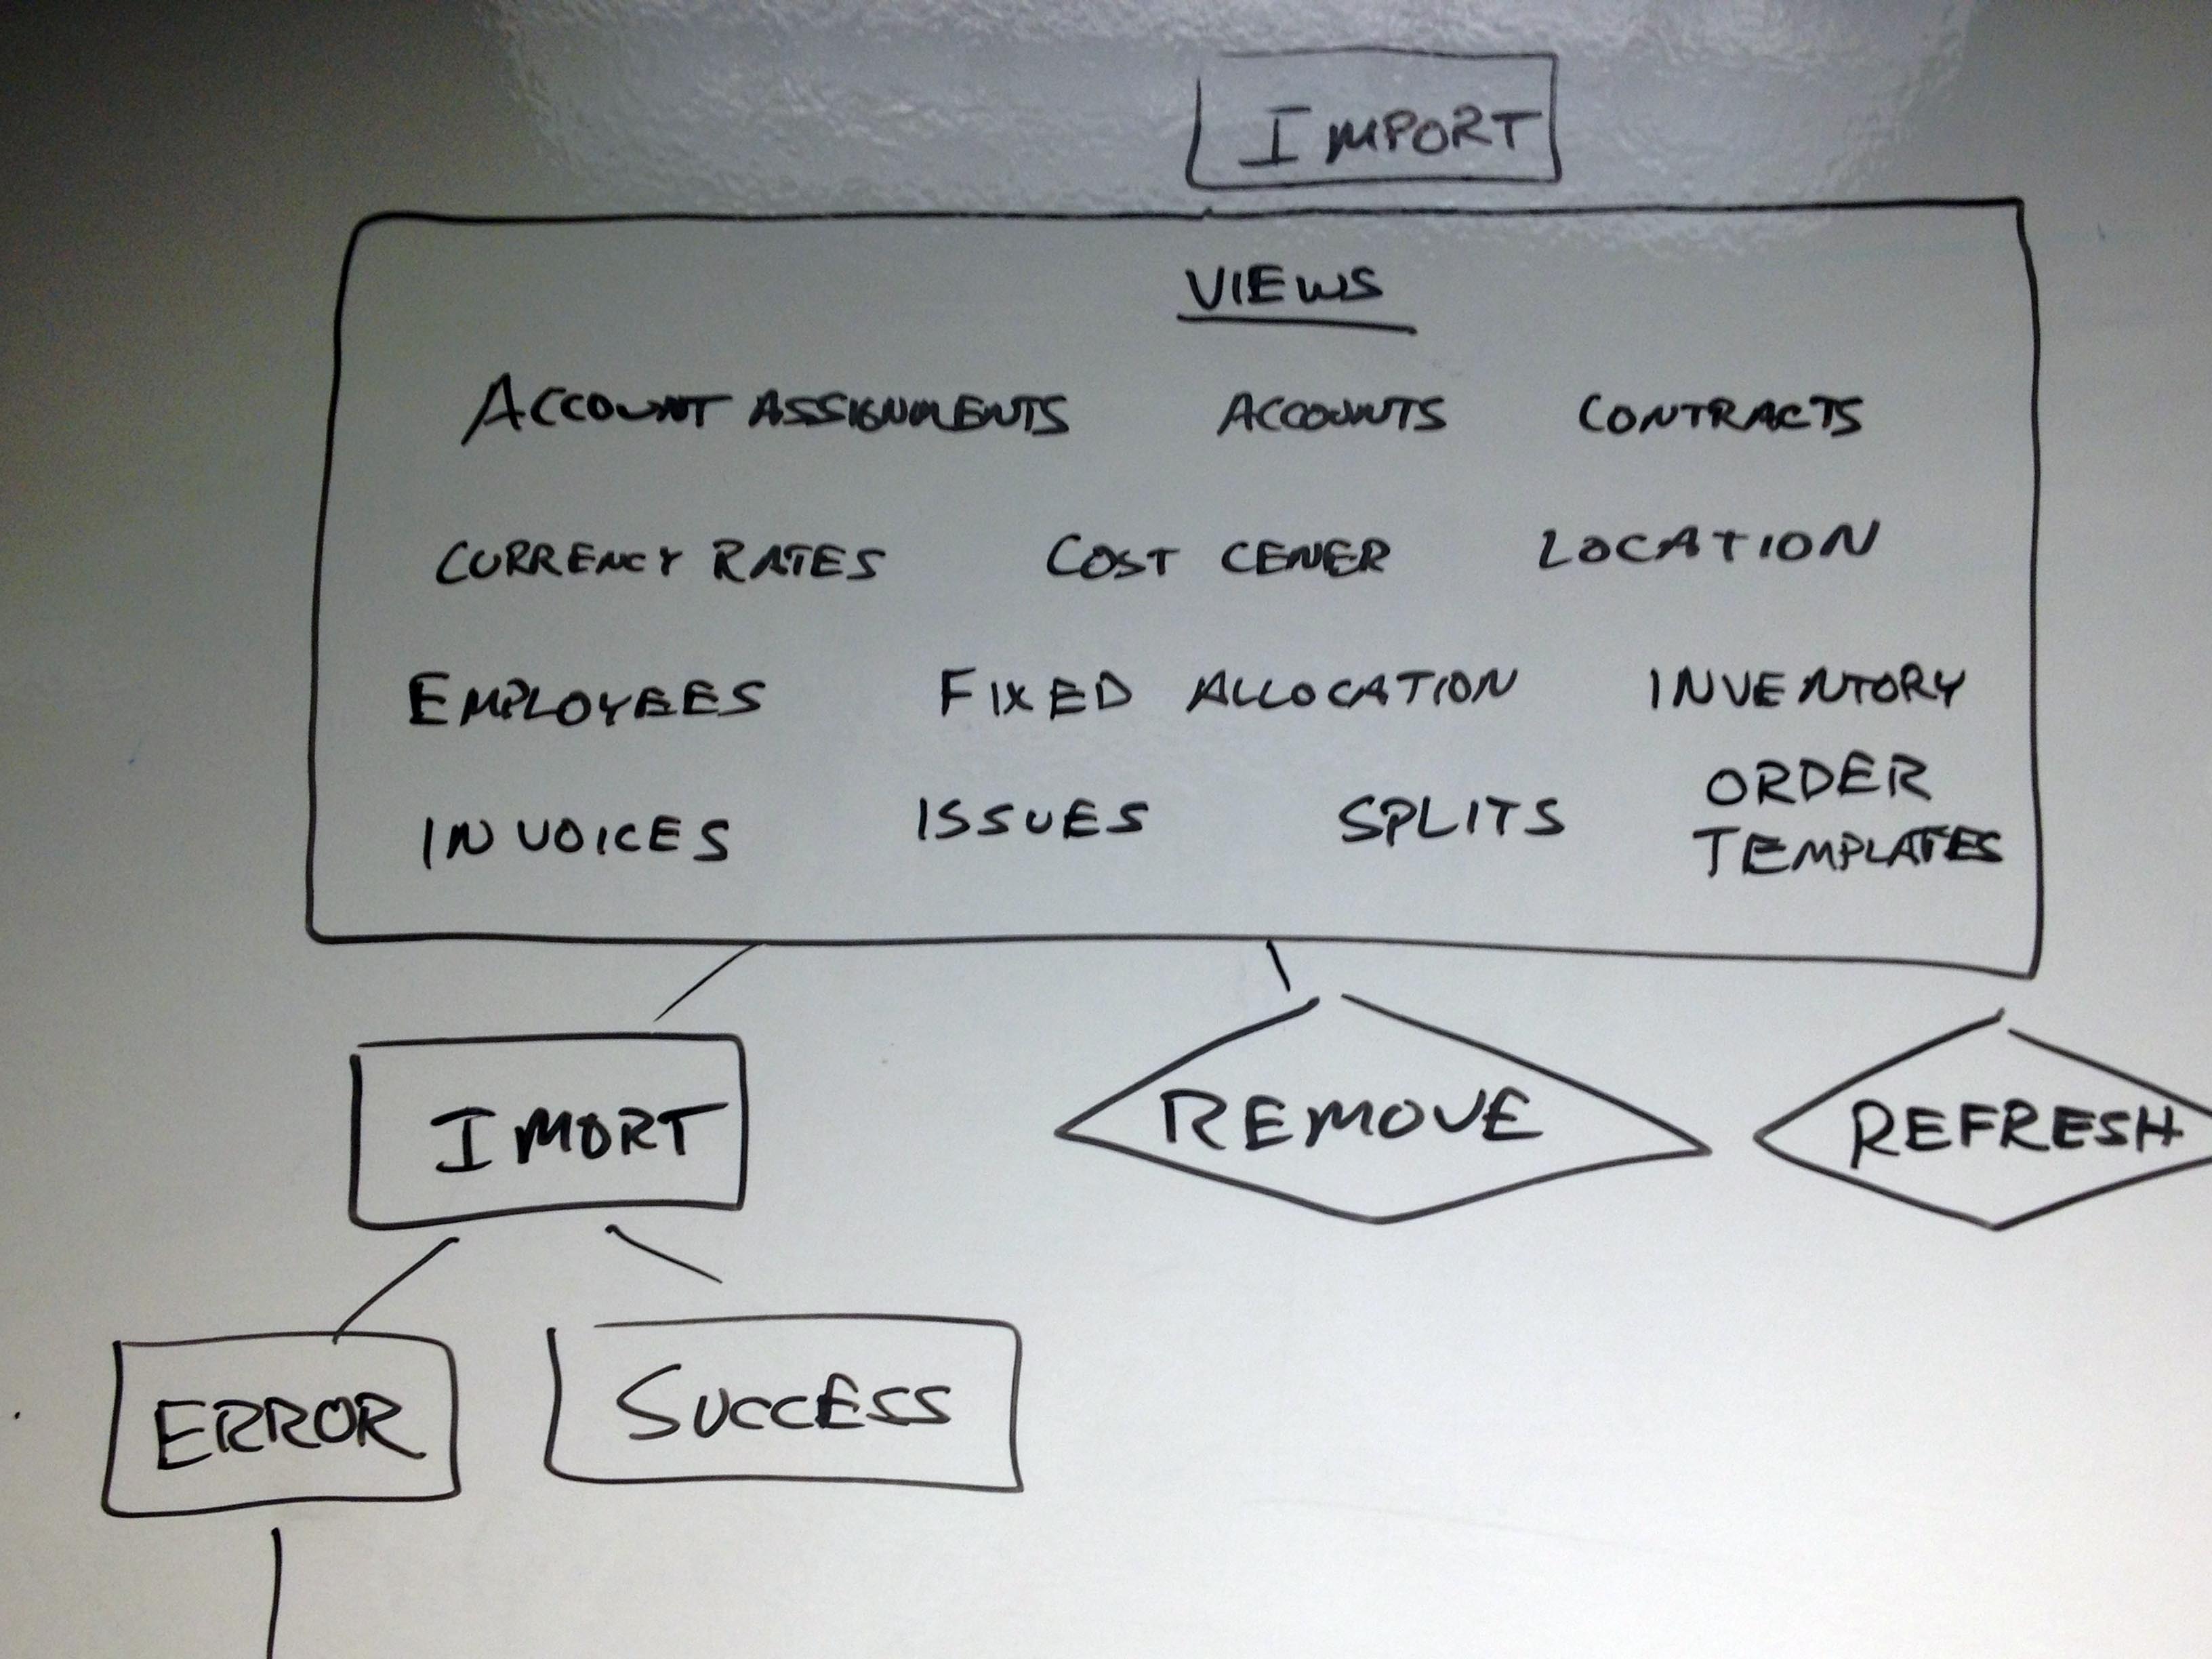 IMPORT
VIEWS
ACCOUNT ASSIGNMENTS ACCOUNTS CONTRACTS
CURRENCY RATES COST CENER LOCATION
EMPLOYEES FIXED ALLOCATION INVENTORY
INVOICES ISSUES SPLITS ORDER
TEMPLATES
IMORT REMOVE REFRESH
ERROR SUCCESS